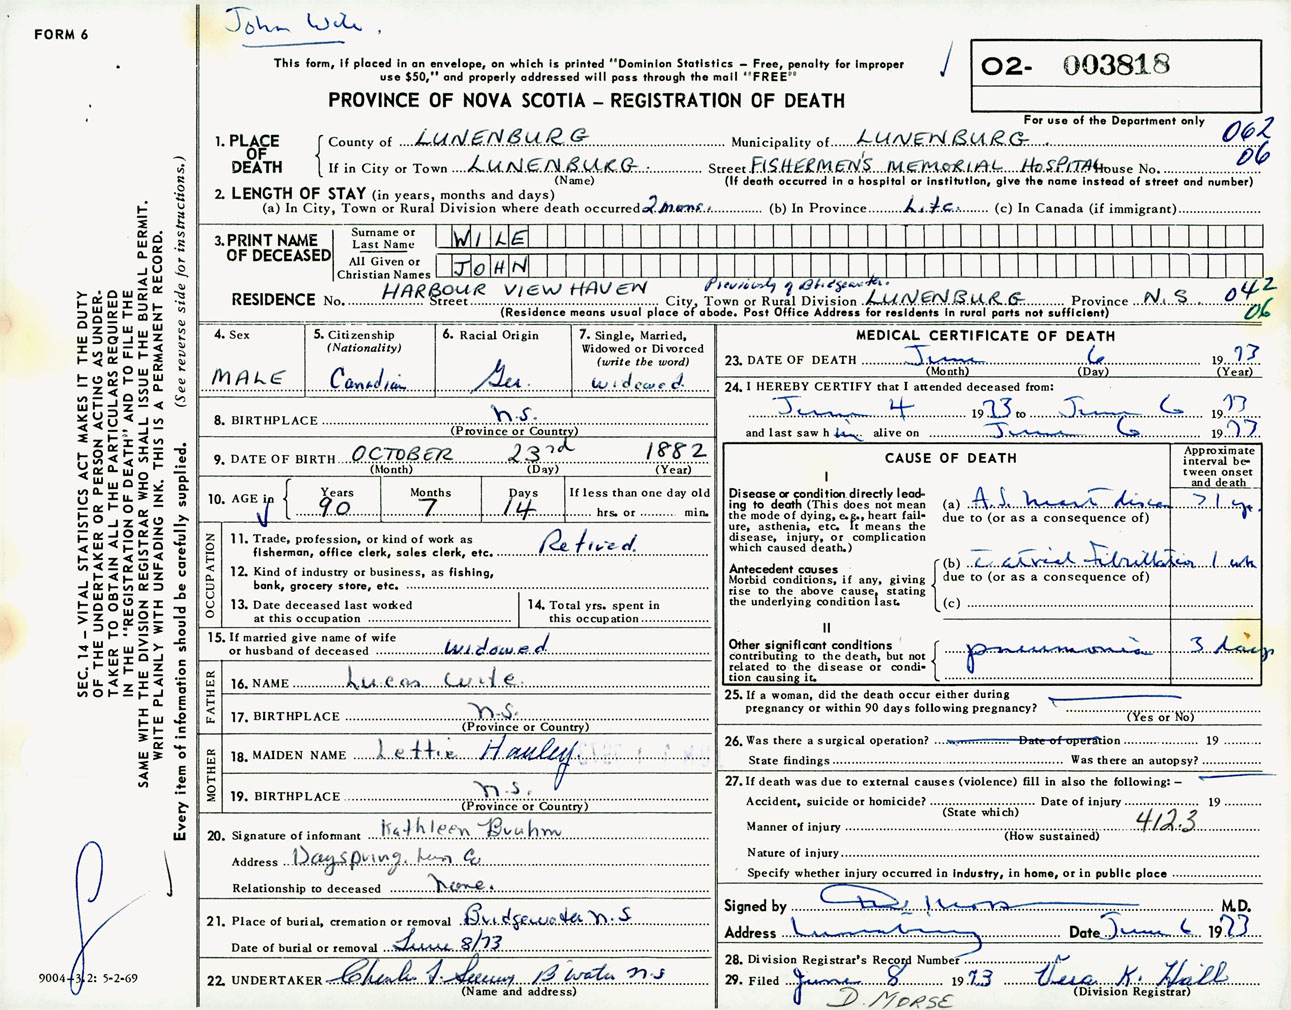 FORM 6
John Wile.
This form, if placed in an envelope, on which is printed "Dominion Statistics – Free, penalty for improper
use $50," and properly addressed will pass through the mail "FREE"
PROVINCE OF NOVA SCOTIA – REGISTRATION OF DEATH
02- 003818
For use of the Department only
062
06
1. PLACE OF DEATH
County of LUNENBURG Municipality of LUNENBURG
If in City or Town LUNENBURG Street FISHERMEN'S MEMORIAL HOSPITAL House No.
(Name) (If death occurred in a hospital or institution, give the name instead of street and number)
2. LENGTH OF STAY (in years, months and days)
(a) In City, Town or Rural Division where death occurred 2 mons. (b) In Province Life. (c) In Canada (if immigrant)
3. PRINT NAME OF DECEASED
Surname or Last Name WILE
All Given or Christian Names JOHN
Previously of Bridgewater.
RESIDENCE No. HARBOUR VIEW HAVEN Street City, Town or Rural Division LUNENBURG Province N.S. 042
06
(Residence means usual place of abode. Post Office Address for residents in rural parts not sufficient)
4. Sex
MALE
5. Citizenship
(Nationality)
Canadian
6. Racial Origin
Ger.
7. Single, Married,
Widowed or Divorced
(write the word)
widowed
8. BIRTHPLACE N.S.
(Province or Country)
9. DATE OF BIRTH OCTOBER 23rd 1882
(Month) (Day) (Year)
10. AGE in Years Months Days If less than one day old
90 7 14 hrs. or min.
OCCUPATION
11. Trade, profession, or kind of work as
fisherman, office clerk, sales clerk, etc. Retired.
12. Kind of industry or business, as fishing,
bank, grocery store, etc.
13. Date deceased last worked
at this occupation
14. Total yrs. spent in
this occupation
15. If married give name of wife
or husband of deceased widowed
FATHER
16. NAME Lucas Wile.
17. BIRTHPLACE N.S.
(Province or Country)
MOTHER
18. MAIDEN NAME Lettie Hauley
19. BIRTHPLACE N.S.
(Province or Country)
20. Signature of informant Kathleen Bruhm
Address Dayspring, Lun Co
Relationship to deceased None.
21. Place of burial, cremation or removal Bridgewater N.S
Date of burial or removal June 8/73
22. UNDERTAKER Charles B'water N.S
(Name and address)
MEDICAL CERTIFICATE OF DEATH
23. DATE OF DEATH June 6 1973
(Month) (Day) (Year)
24. I HEREBY CERTIFY that I attended deceased from:
June 4 1973 to June 6 1973
and last saw him alive on June 6 1973
CAUSE OF DEATH
Approximate
interval be-
tween onset
and death
I
Disease or condition directly lead-
ing to death (This does not
mean the mode of dying, e.g., heart fail-
ure, asthenia, etc. It means the
disease, injury, or complication
which caused death.)
(a) A.S. heart disease >1 yr.
due to (or as a consequence of)
Antecedent causes
Morbid conditions, if any, giving
rise to the above cause, stating
the underlying condition last.
(b) c̄ atrial fibrillation 1 wk
due to (or as a consequence of)
(c)
II
Other significant conditions
contributing to the death, but not
related to the disease or condi-
tion causing it.
pneumonia 3 days
25. If a woman, did the death occur either during
pregnancy or within 90 days following pregnancy?
(Yes or No)
26. Was there a surgical operation? Date of operation 19
State findings Was there an autopsy?
27. If death was due to external causes (violence) fill in also the following: –
Accident, suicide or homicide? Date of injury 19
(State which)
Manner of injury 412.3
(How sustained)
Nature of injury
Specify whether injury occurred in industry, in home, or in public place
Signed by M.D.
Address Lunenburg Date June 6 1973
28. Division Registrar's Record Number
29. Filed June 8 1973 Vera K. Hall
(Division Registrar)
D. MORSE
SEC. 14 – VITAL STATISTICS ACT MAKES IT THE DUTY
OF THE UNDERTAKER OR PERSON ACTING AS UNDER-
TAKER TO OBTAIN ALL THE PARTICULARS REQUIRED
IN THE "REGISTRATION OF DEATH" AND TO FILE THE
SAME WITH THE DIVISION REGISTRAR WHO SHALL ISSUE THE BURIAL PERMIT.
WRITE PLAINLY WITH UNFADING INK. THIS IS A PERMANENT RECORD.
Every item of information should be carefully supplied. (See reverse side for instructions.)
9004-3.2: 5-2-69